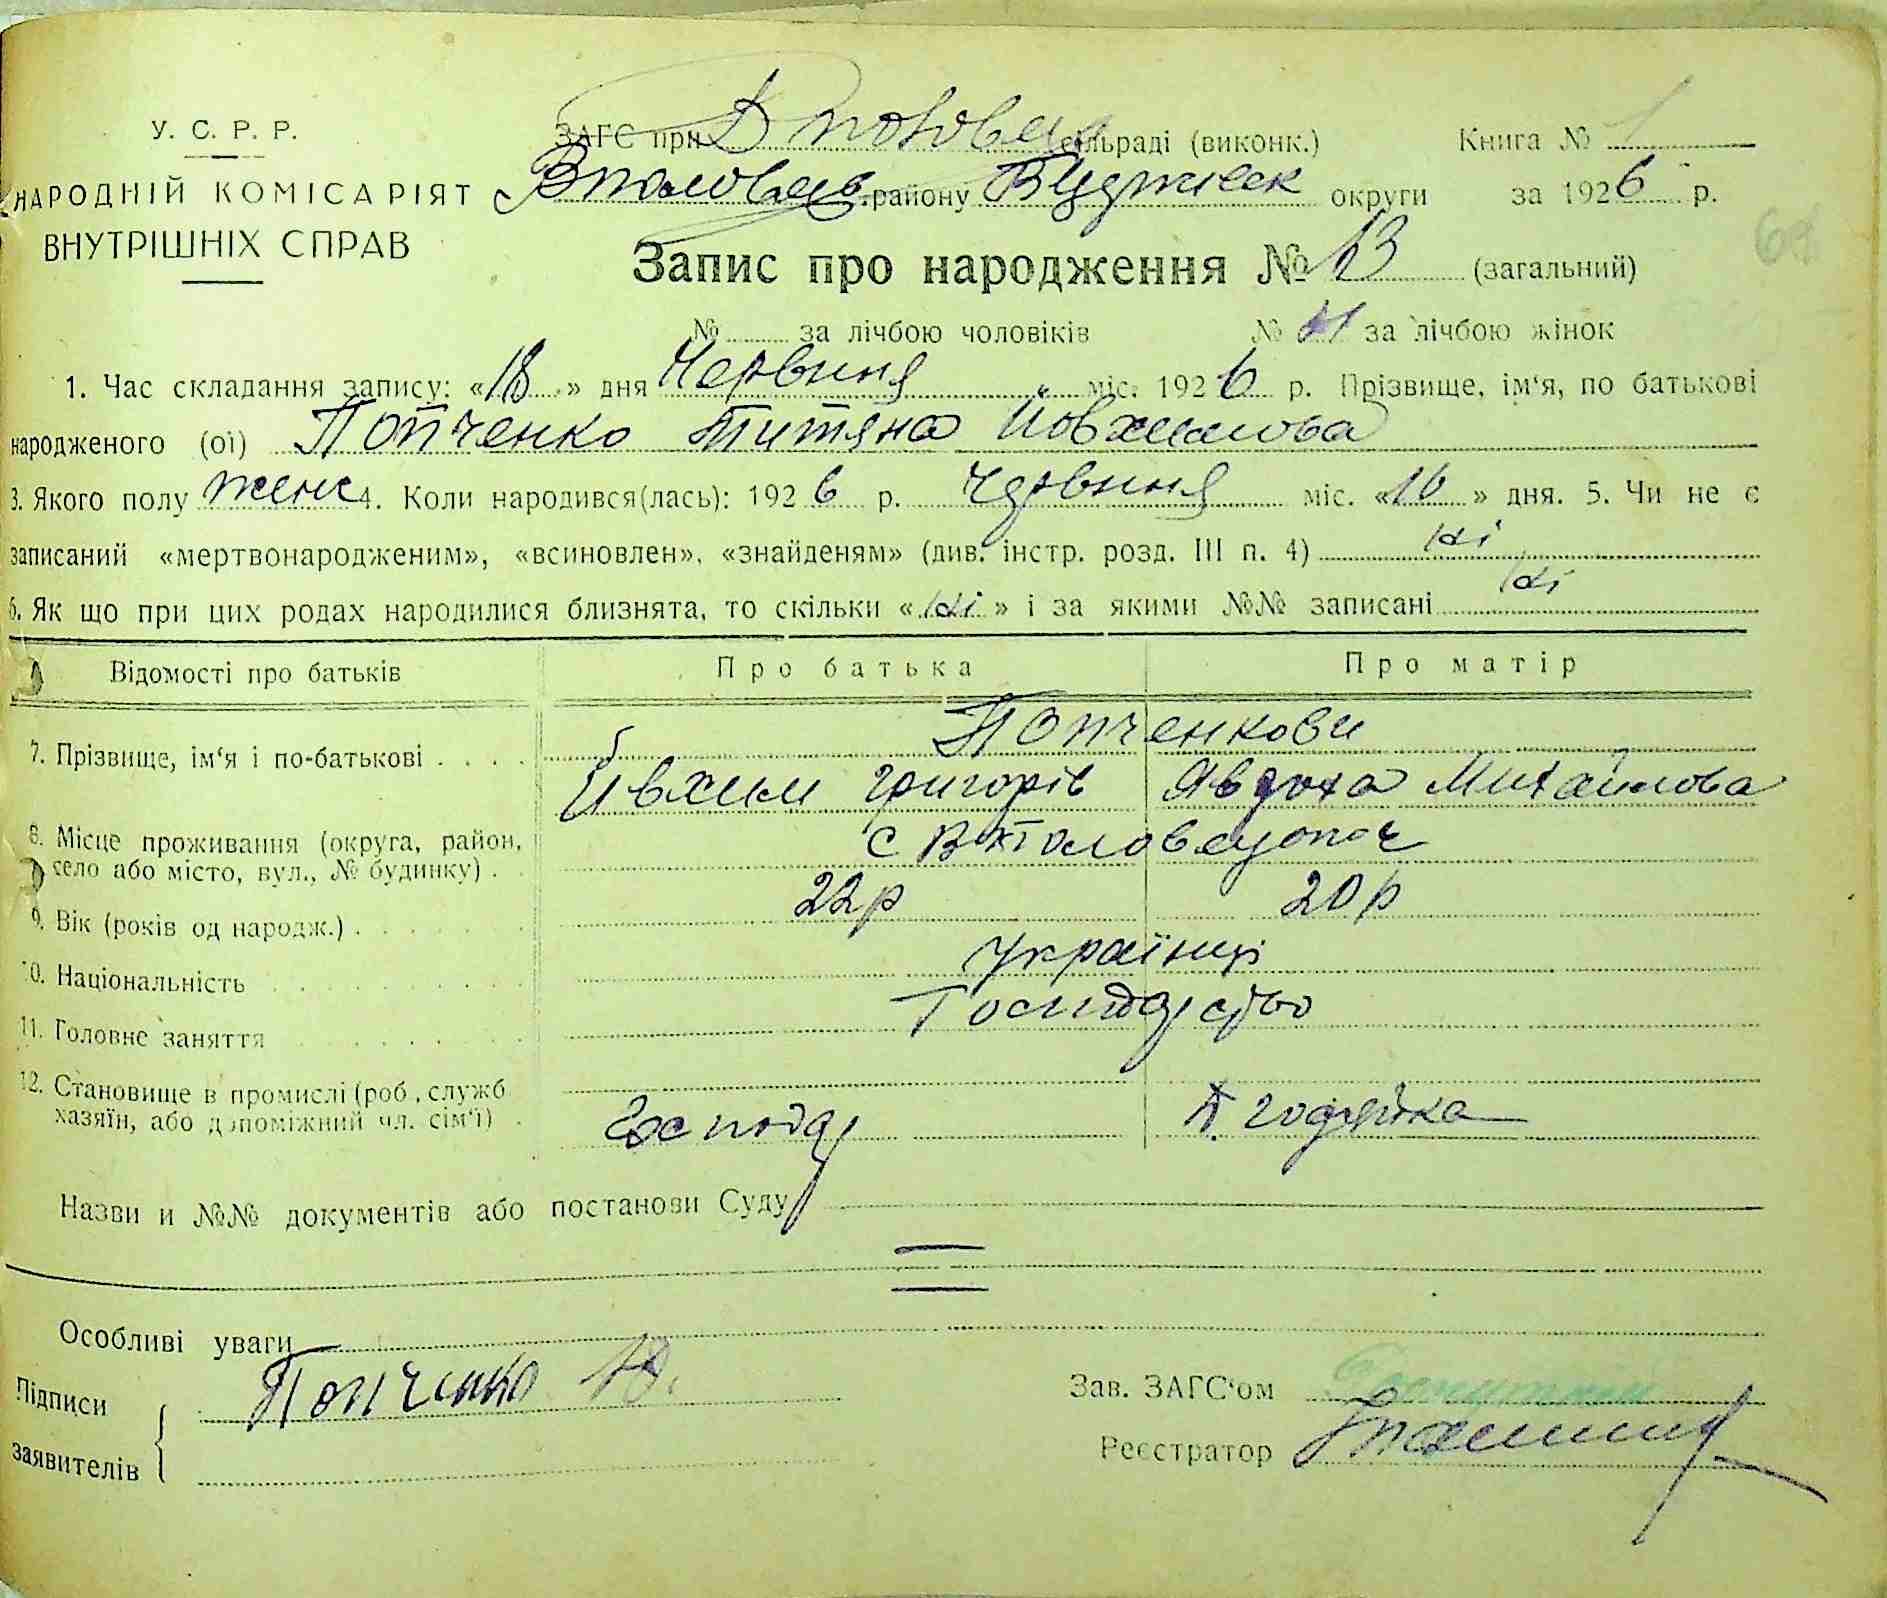 У. С. Р. Р.
НАРОДНІЙ КОМІСАРІЯТ
ВНУТРІШНІХ СПРАВ
ЗАГС при сільраді (виконк.) Книга № 1
району округи за 1926 р.
69
Запис про народження № 13 (загальний)
№ за лічбою чоловіків № за лічбою жінок
1. Час складання запису: «18» дня Червння міс. 1926 р. Прізвище, ім'я, по батькові
народженого (ої) Попченко Титяна Йовхимова
3. Якого полу женс 4. Коли народився(лась): 1926 р. Червння міс. «16» дня. 5. Чи не є
записаний «мертвонародженим», «всиновлен», «знайденям» (див. інстр. розд. III п. 4) ні
6. Як що при цих родах народилися близнята, то скільки «ні» і за якими №№ записані ні
Відомості про батьків Про батька Про матір
7. Прізвище, ім'я і по-батькові Попченкови
Ивхим Григорів Явдоха Михайлова
8. Місце проживання (округа, район,
село або місто, вул., № будинку) с
9. Вік (років од народж.) 22р 20р
10. Національність Українці
11. Головне заняття Господарство
12. Становище в промислі (роб., служб
хазяїн, або допоміжний чл. сім'ї) Господар
Назви и №№ документів або постанови Суду
Особливі уваги
Підписи Попченко Ю.
заявителів
Зав. ЗАГС'ом
Реєстратор